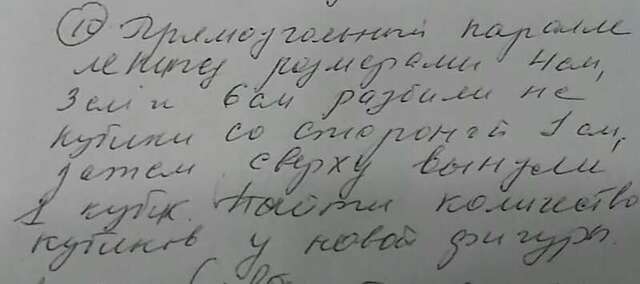 10 Прямоугольный паралле
лепипед размерами 4 см,
3 см и 6 см разбили на
кубики со стороной 1 см,
затем сверху вынули
1 кубик. Найти количество
кубиков у новой фигуры.